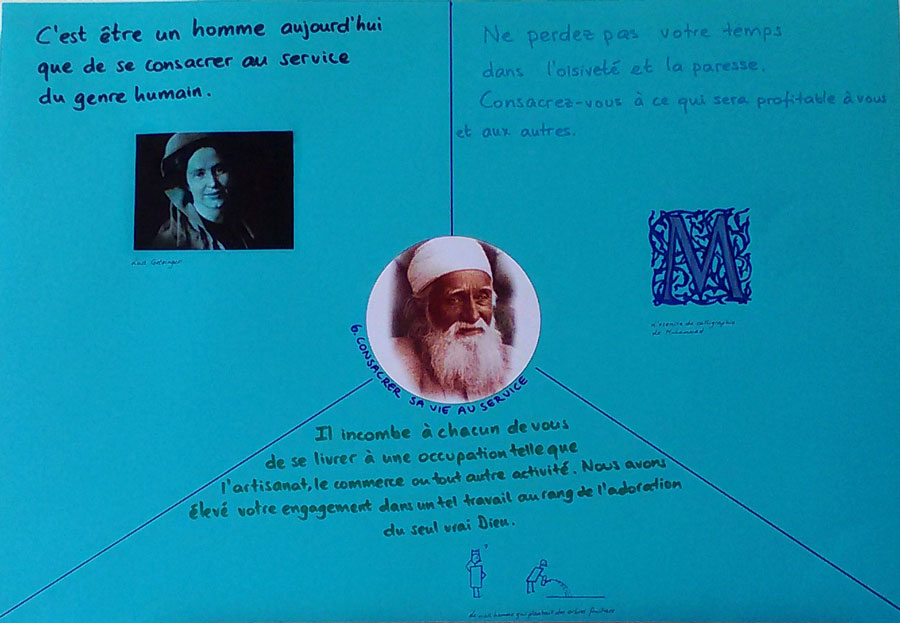 C'est être un homme aujourd'hui
que de se consacrer au service
du genre humain.
Ne perdez pas votre temps
dans l'oisiveté et la paresse.
Consacrez-vous à ce qui sera profitable à vous
et aux autres.
M
de Muhammad
6. CONSACRER SA VIE AU SERVICE
Il incombe à chacun de vous
de se livrer à une occupation telle que
l'artisanat, le commerce ou tout autre activité. Nous avons
élevé votre engagement dans un tel travail au rang de l'adoration
du seul vrai Dieu.
?
Le vieil homme qui plantait des arbres fruitiers